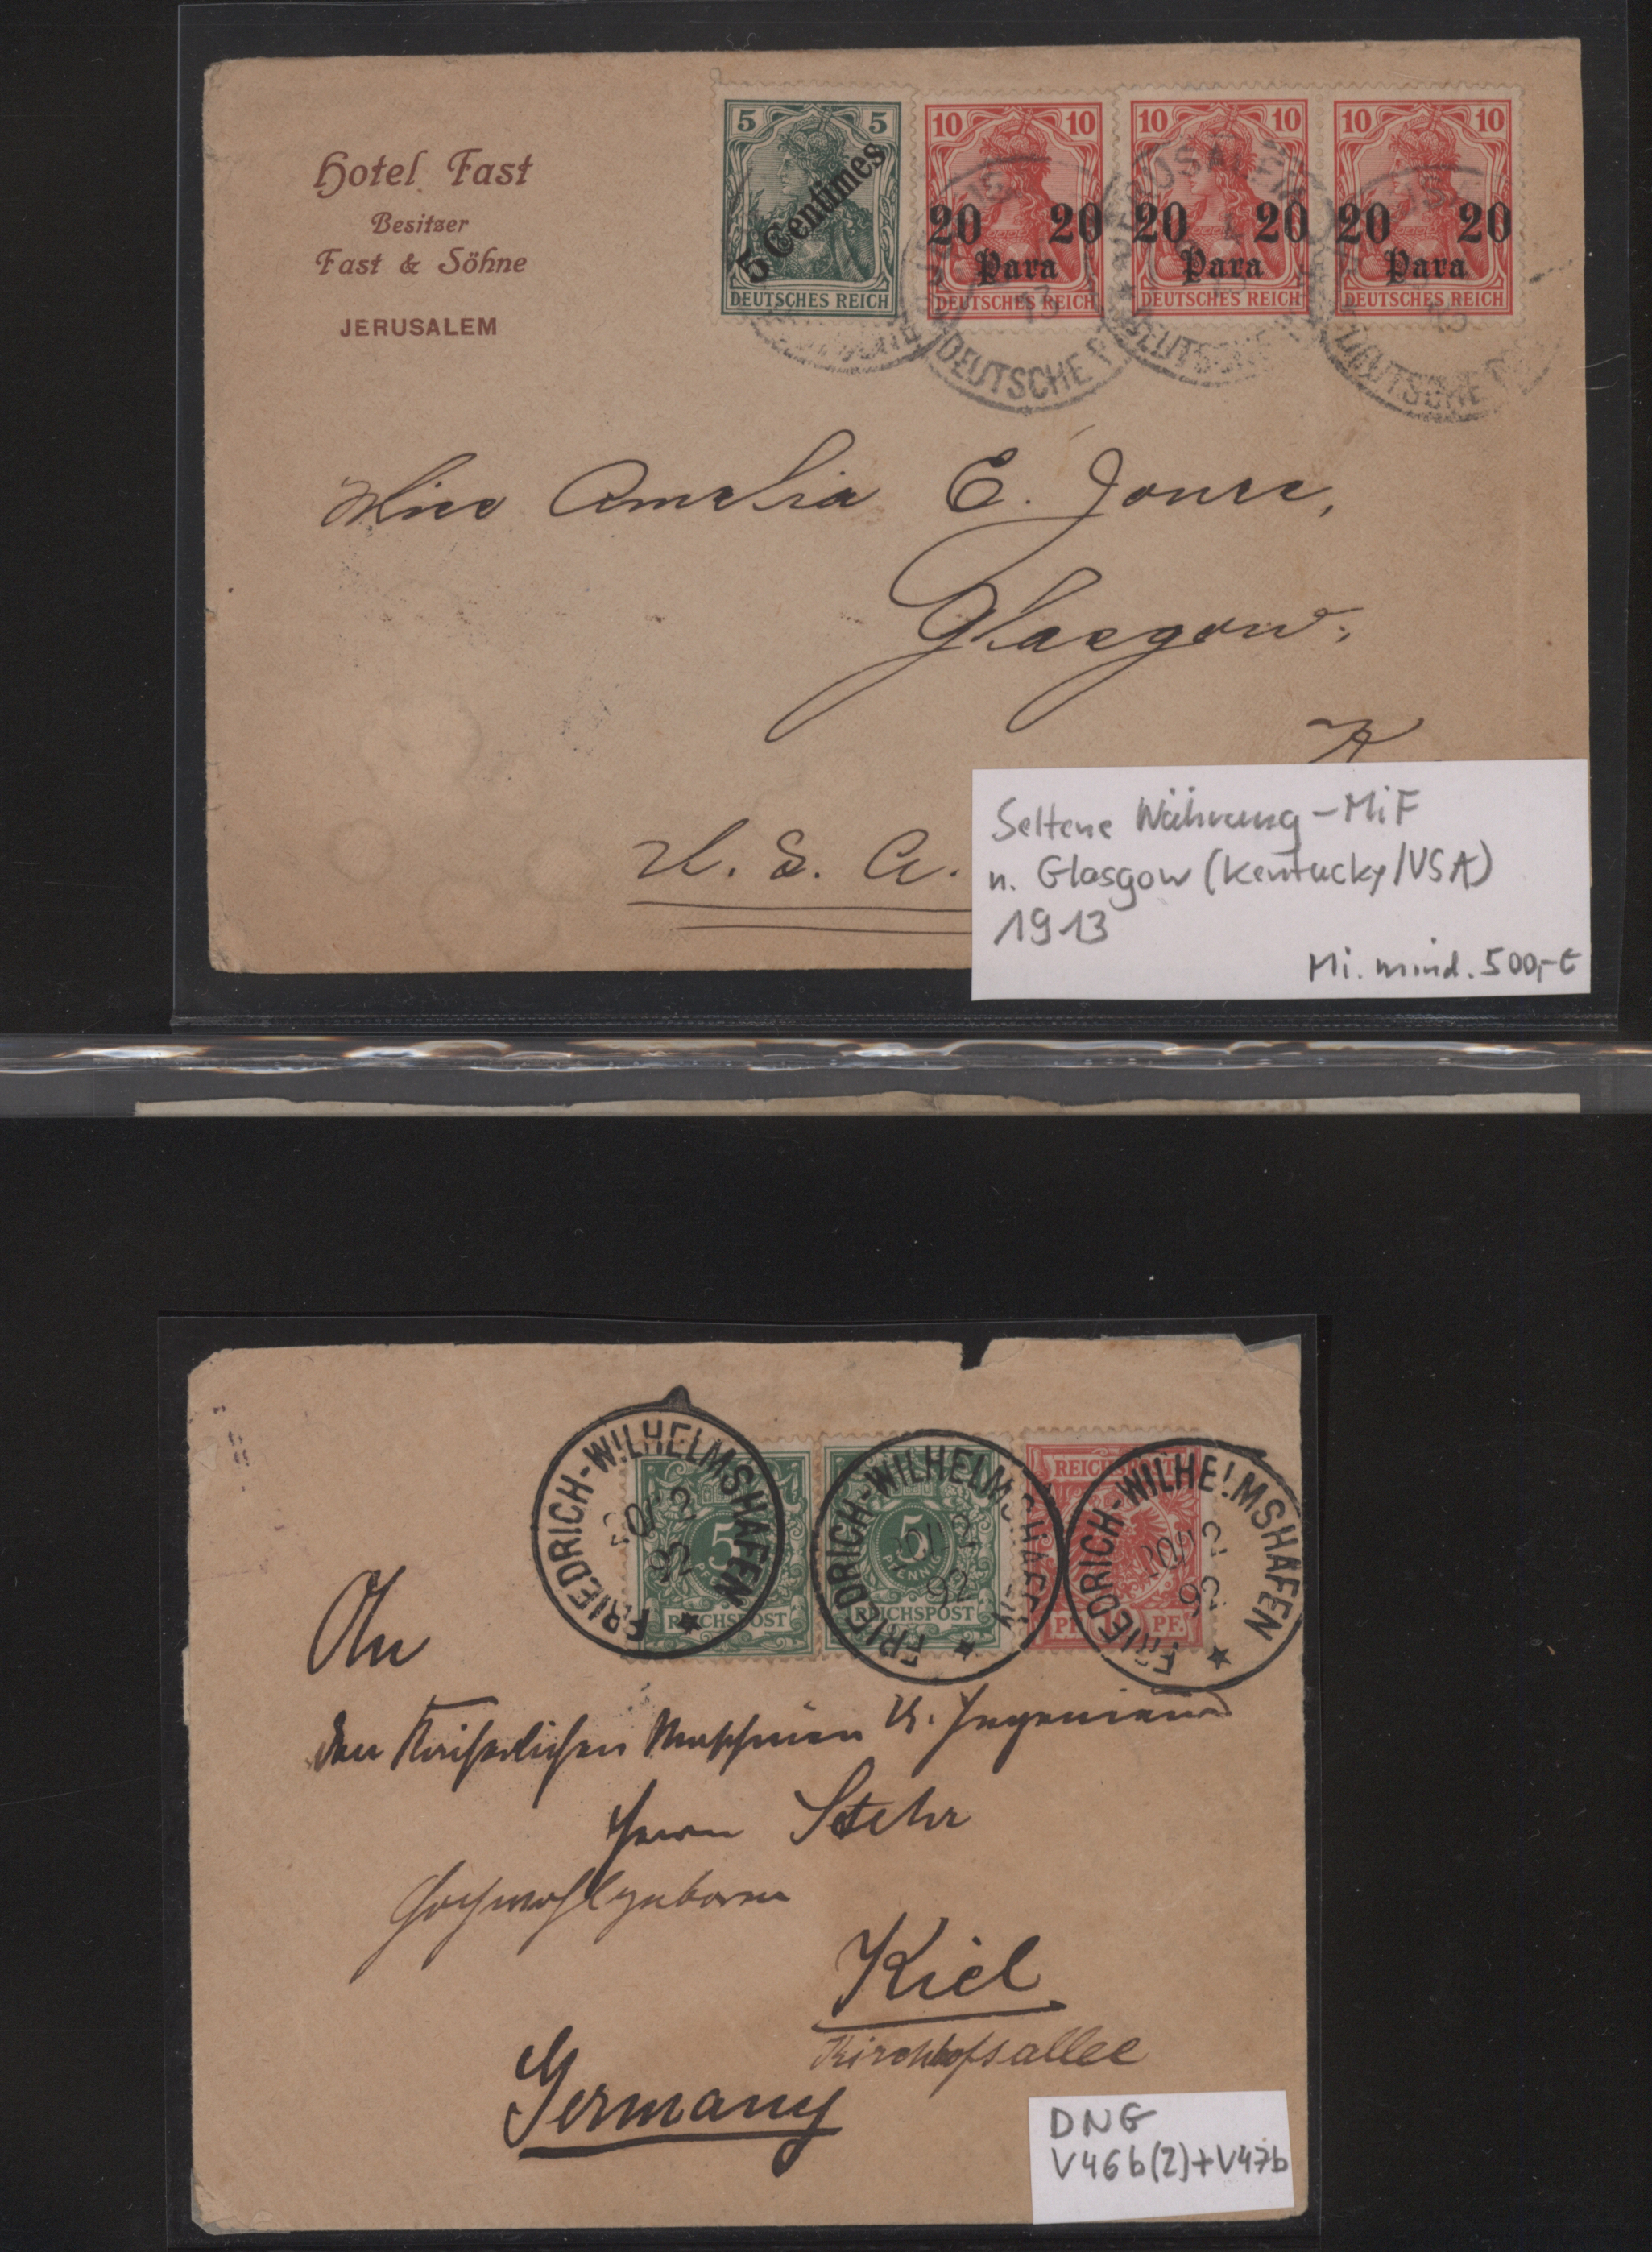 Hotel Fast
Besitzer
Fast & Söhne
JERUSALEM
5 5
5 Centimes
DEUTSCHES REICH
10 10
20 20
Para
DEUTSCHES REICH
10 10
20 20
Para
DEUTSCHES REICH
10 10
20 20
Para
DEUTSCHES REICH
JERUSALEM
DEUTSCHE
Miss Amelia E. Jones,
Glasgow,
K
U. S. A.
Seltene Währung-MiF
n. Glasgow (Kentucky/USA)
1913
Mi. mind. 500,-€
FRIEDRICH-WILHELMSHAFEN
20/12
92
5
PFENNIG
REICHSPOST
FRIEDRICH-WILHELMSHAFEN
92
5
PFENNIG
REICHSPOST
FRIEDRICH-WILHELMSHAFEN
92
REICHSPOST
PF. 10 PF.
An
den Kaiserlichen Maschinen U. Ingenieur
Herrn Stehr
Hochwohlgeboren
Kiel
Kirchhofsallee
Germany
DNG
V46b(2)+V47b